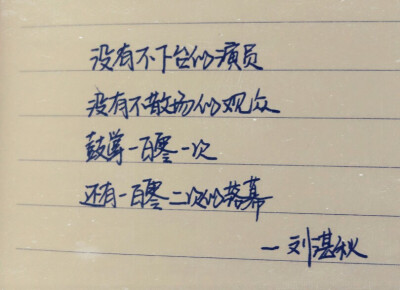 没有不下台的演员
没有不散场的观众
鼓掌一百零一次
还有一百零二次的落幕
—刘湛秋